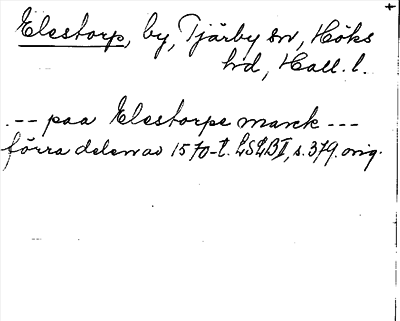 Elestorp, by, Tjärby sn, Höks
hd, Hall. l.
.-- paa Elestorpe marck ---
förra delen av 1570-t. LSLB II, s. 379. orig.